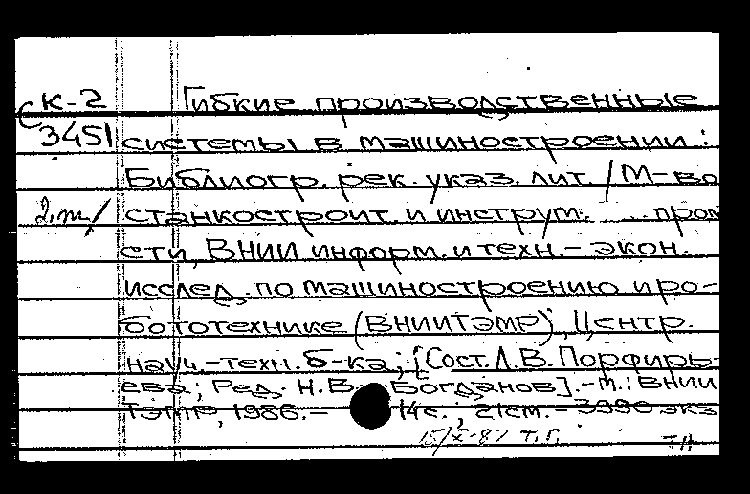 К-2
С 3451
2.т/
Гибкие производственные
системы в машиностроении:
Библиогр. рек. указ. лит. / М-во
станкостроит. и инструм. пром
сти, ВНИИ информ. и техн.-экон.
исслед. по машиностроению и ро-
бототехнике (ВНИИТЭМР), Центр.
науч.-техн. б-ка; [Сост. Л.В. Порфирь-
ева; Ред. Н.В. Богданов].-М.: ВНИИ
ТЭМР, 1986.- 14с.; 21см.-3990 экз
15/X-87 Т.Г.